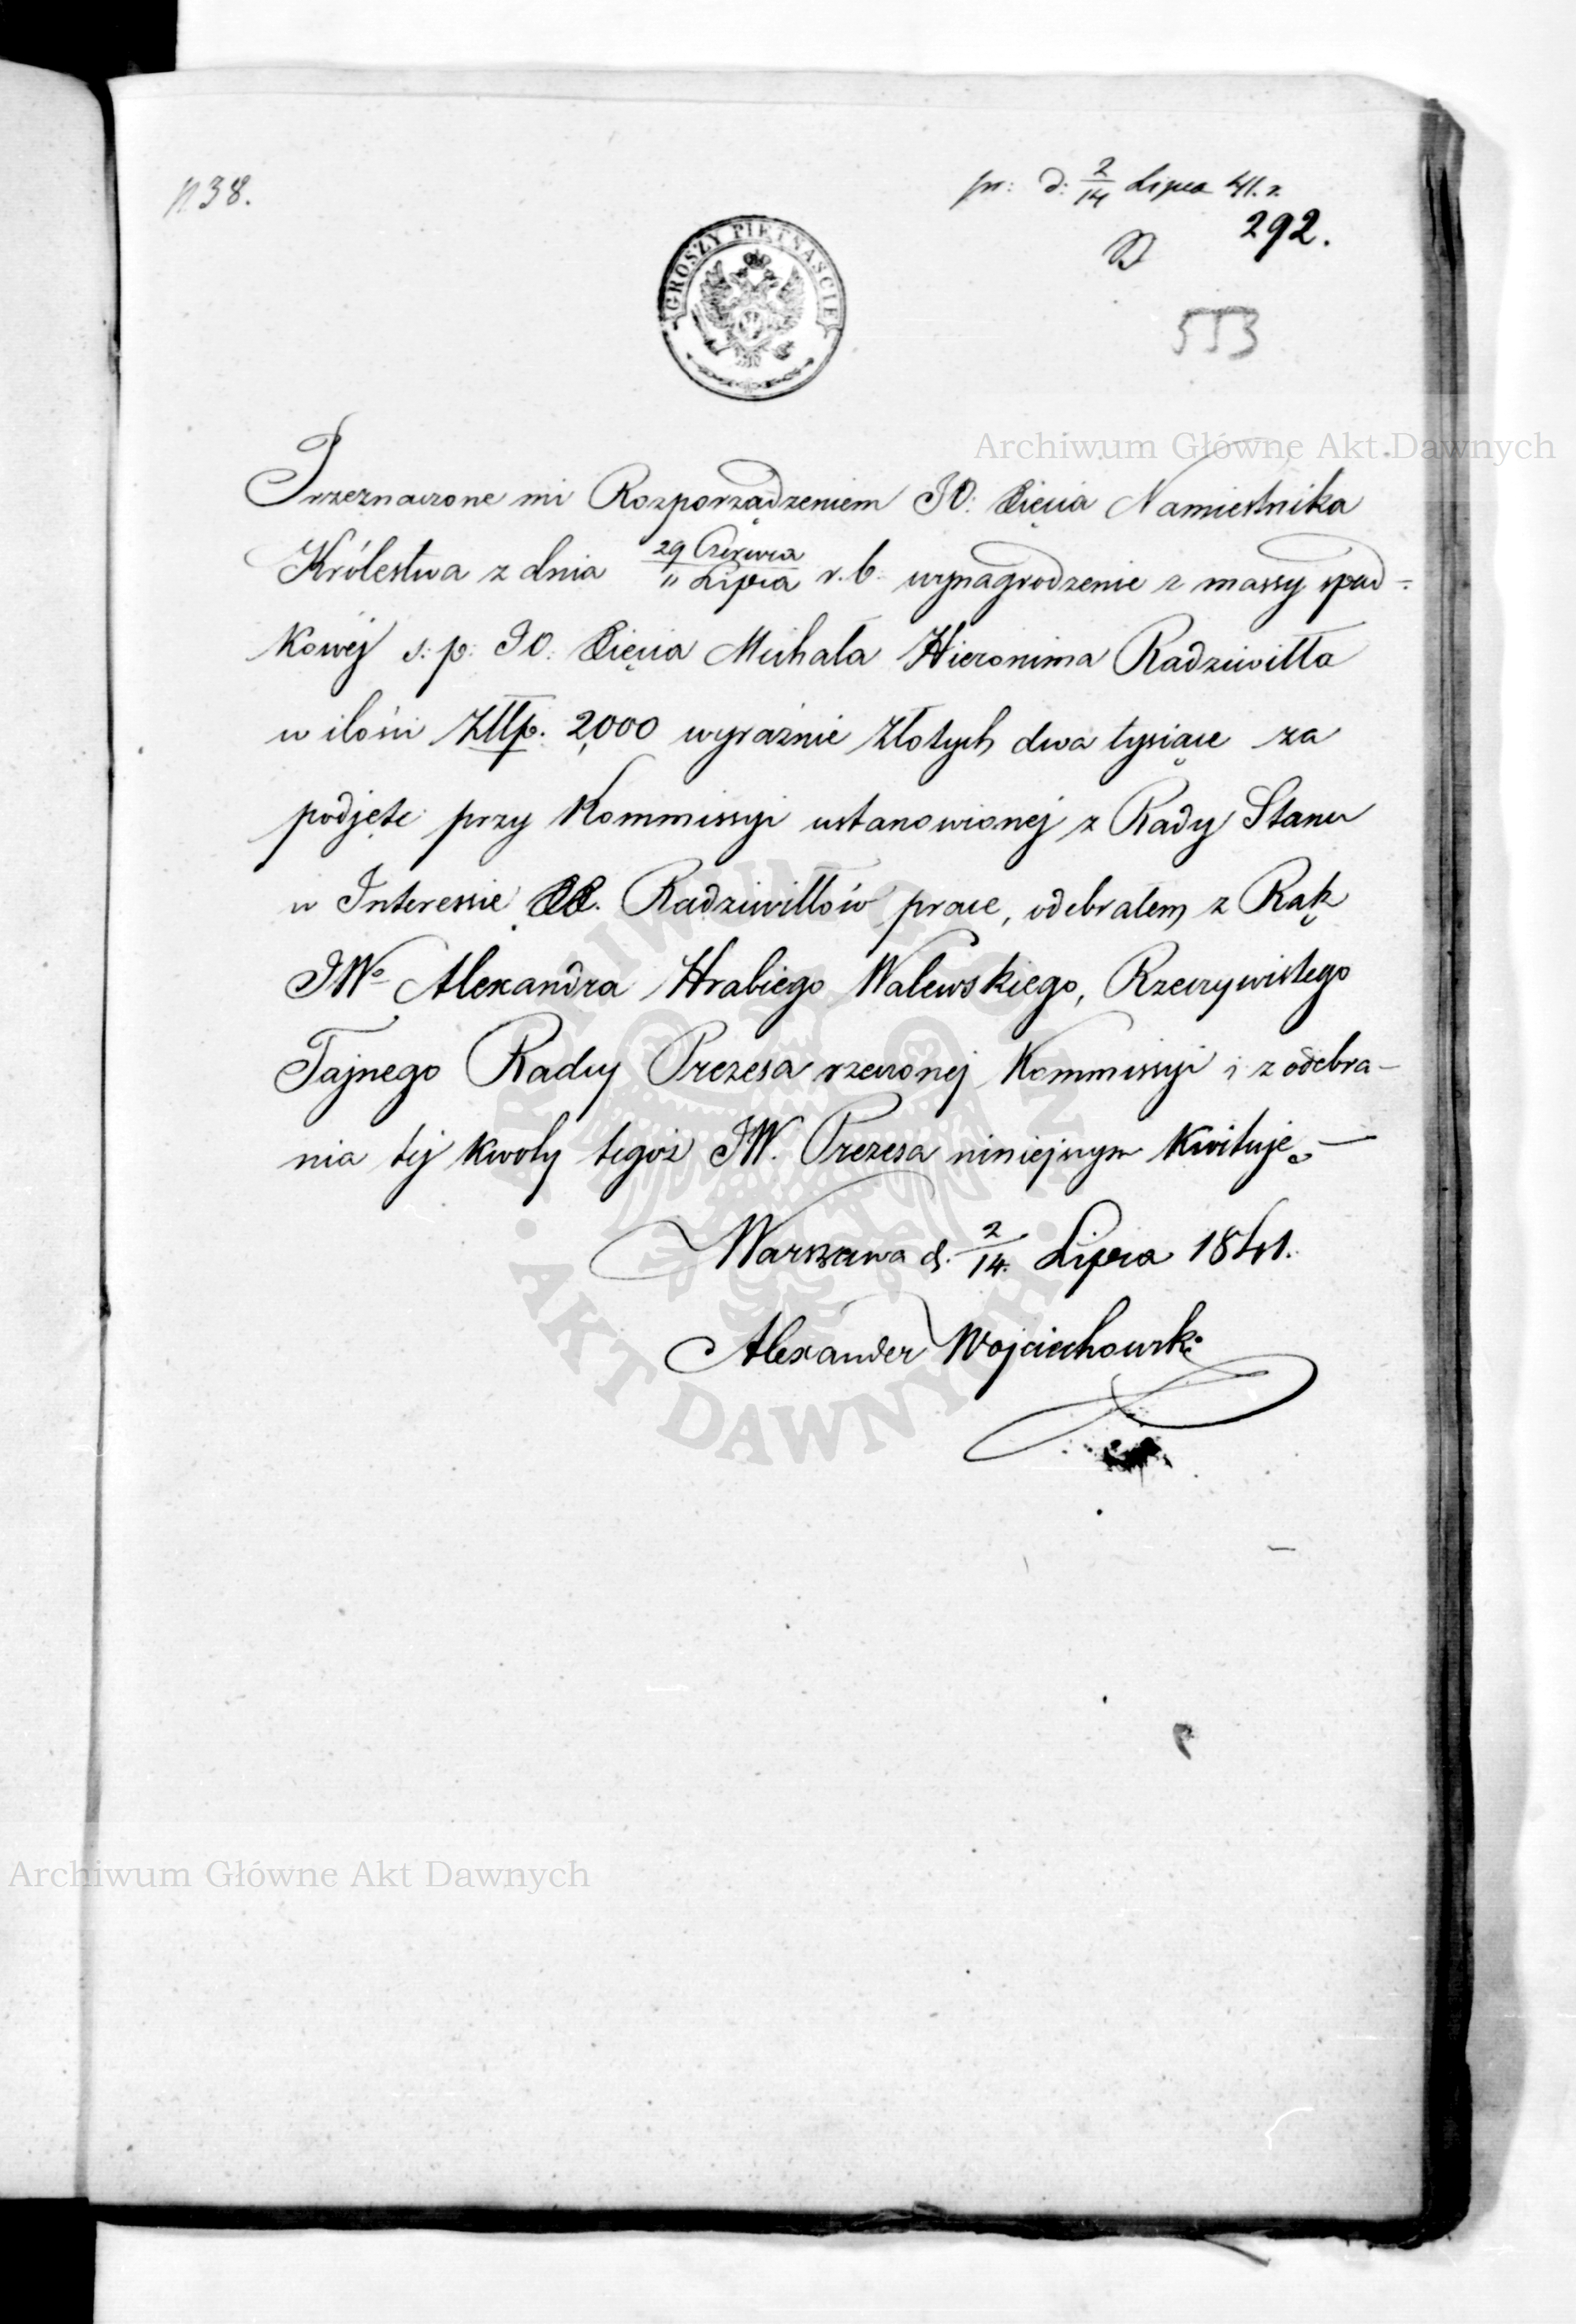 N 38.
pr: d: 2/14 Lipca 41. r.
292.
GROSZY PIĘTNAŚCIE
553
Archiwum Główne Akt Dawnych
Przeznaczone mi Rozporządzeniem JO: Xięcia Namiestnika
Królestwa z dnia 29 Czerwca / 11 Lipca r. b. wynagrodzenie z massy spad-
kowéj ś: p: JO: Xięcia Michała Hieronima Radziwiłła
w ilości Złłp. 2,000 wyraźnie Złotych dwa tysiące za
podjęte przy Kommissyi ustanowionej z Rady Stanu
w Interessie XX. Radziwiłłów prace, odebrałem z Rąk
JWo Alexandra Hrabiego Walewskiego, Rzeczywistego
Tajnego Radzcy Prezesa rzeczonej Kommissyi i z odebra-
nia tej kwoty tegoż JW. Prezesa niniejszym Kwituję.—
Warszawa d. 2/14. Lipca 1841.
Alexander Wojciechowski
ARCHIWUM GŁÓWNE
· AKT DAWNYCH ·
Archiwum Główne Akt Dawnych